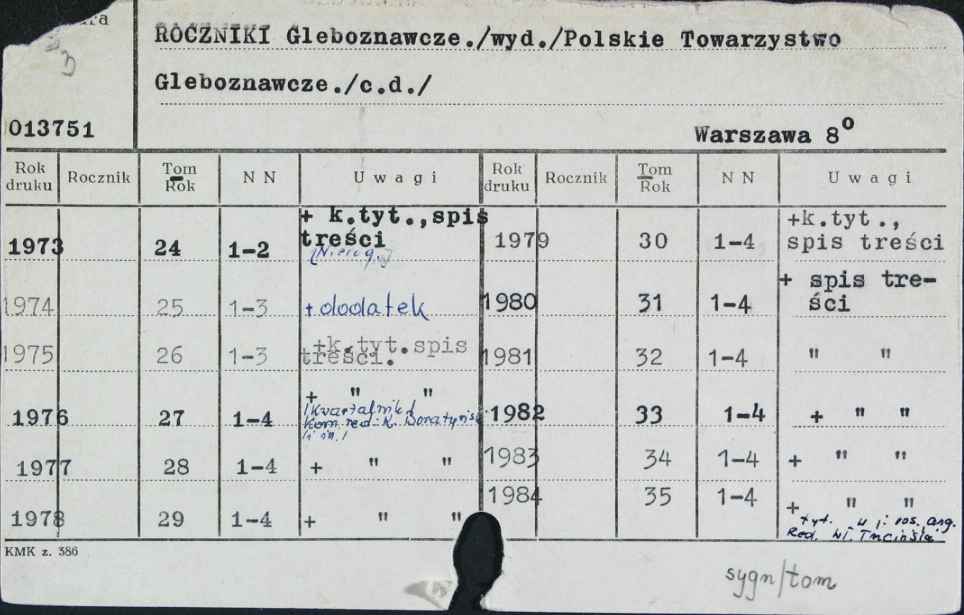 3
ROCZNIKI Gleboznawcze./wyd./Polskie Towarzystwo
Gleboznawcze./c.d./
013751
Warszawa 8°
Rok druku Rocznik Tom Rok N N Uwagi Rok druku Rocznik Tom Rok N N Uwagi
1973 24 1-2 + k.tyt.,spis treści
1979 30 1-4 +k.tyt., spis treści
1974 25 1-3 + dodatek
1980 31 1-4 + spis tre-
ści
1975 26 1-3 +k.tyt.spis treści.
1981 32 1-4 " "
1976 27 1-4 + " "
/Kwartalnik/
Kom. red. K.
1982 33 1-4 + " "
1977 28 1-4 + " "
1983 34 1-4 + " "
1978 29 1-4 + " "
1984 35 1-4 + " "
+ tyt. w j. ros. ang.
Red.
KMK z. 386
sygn/tom